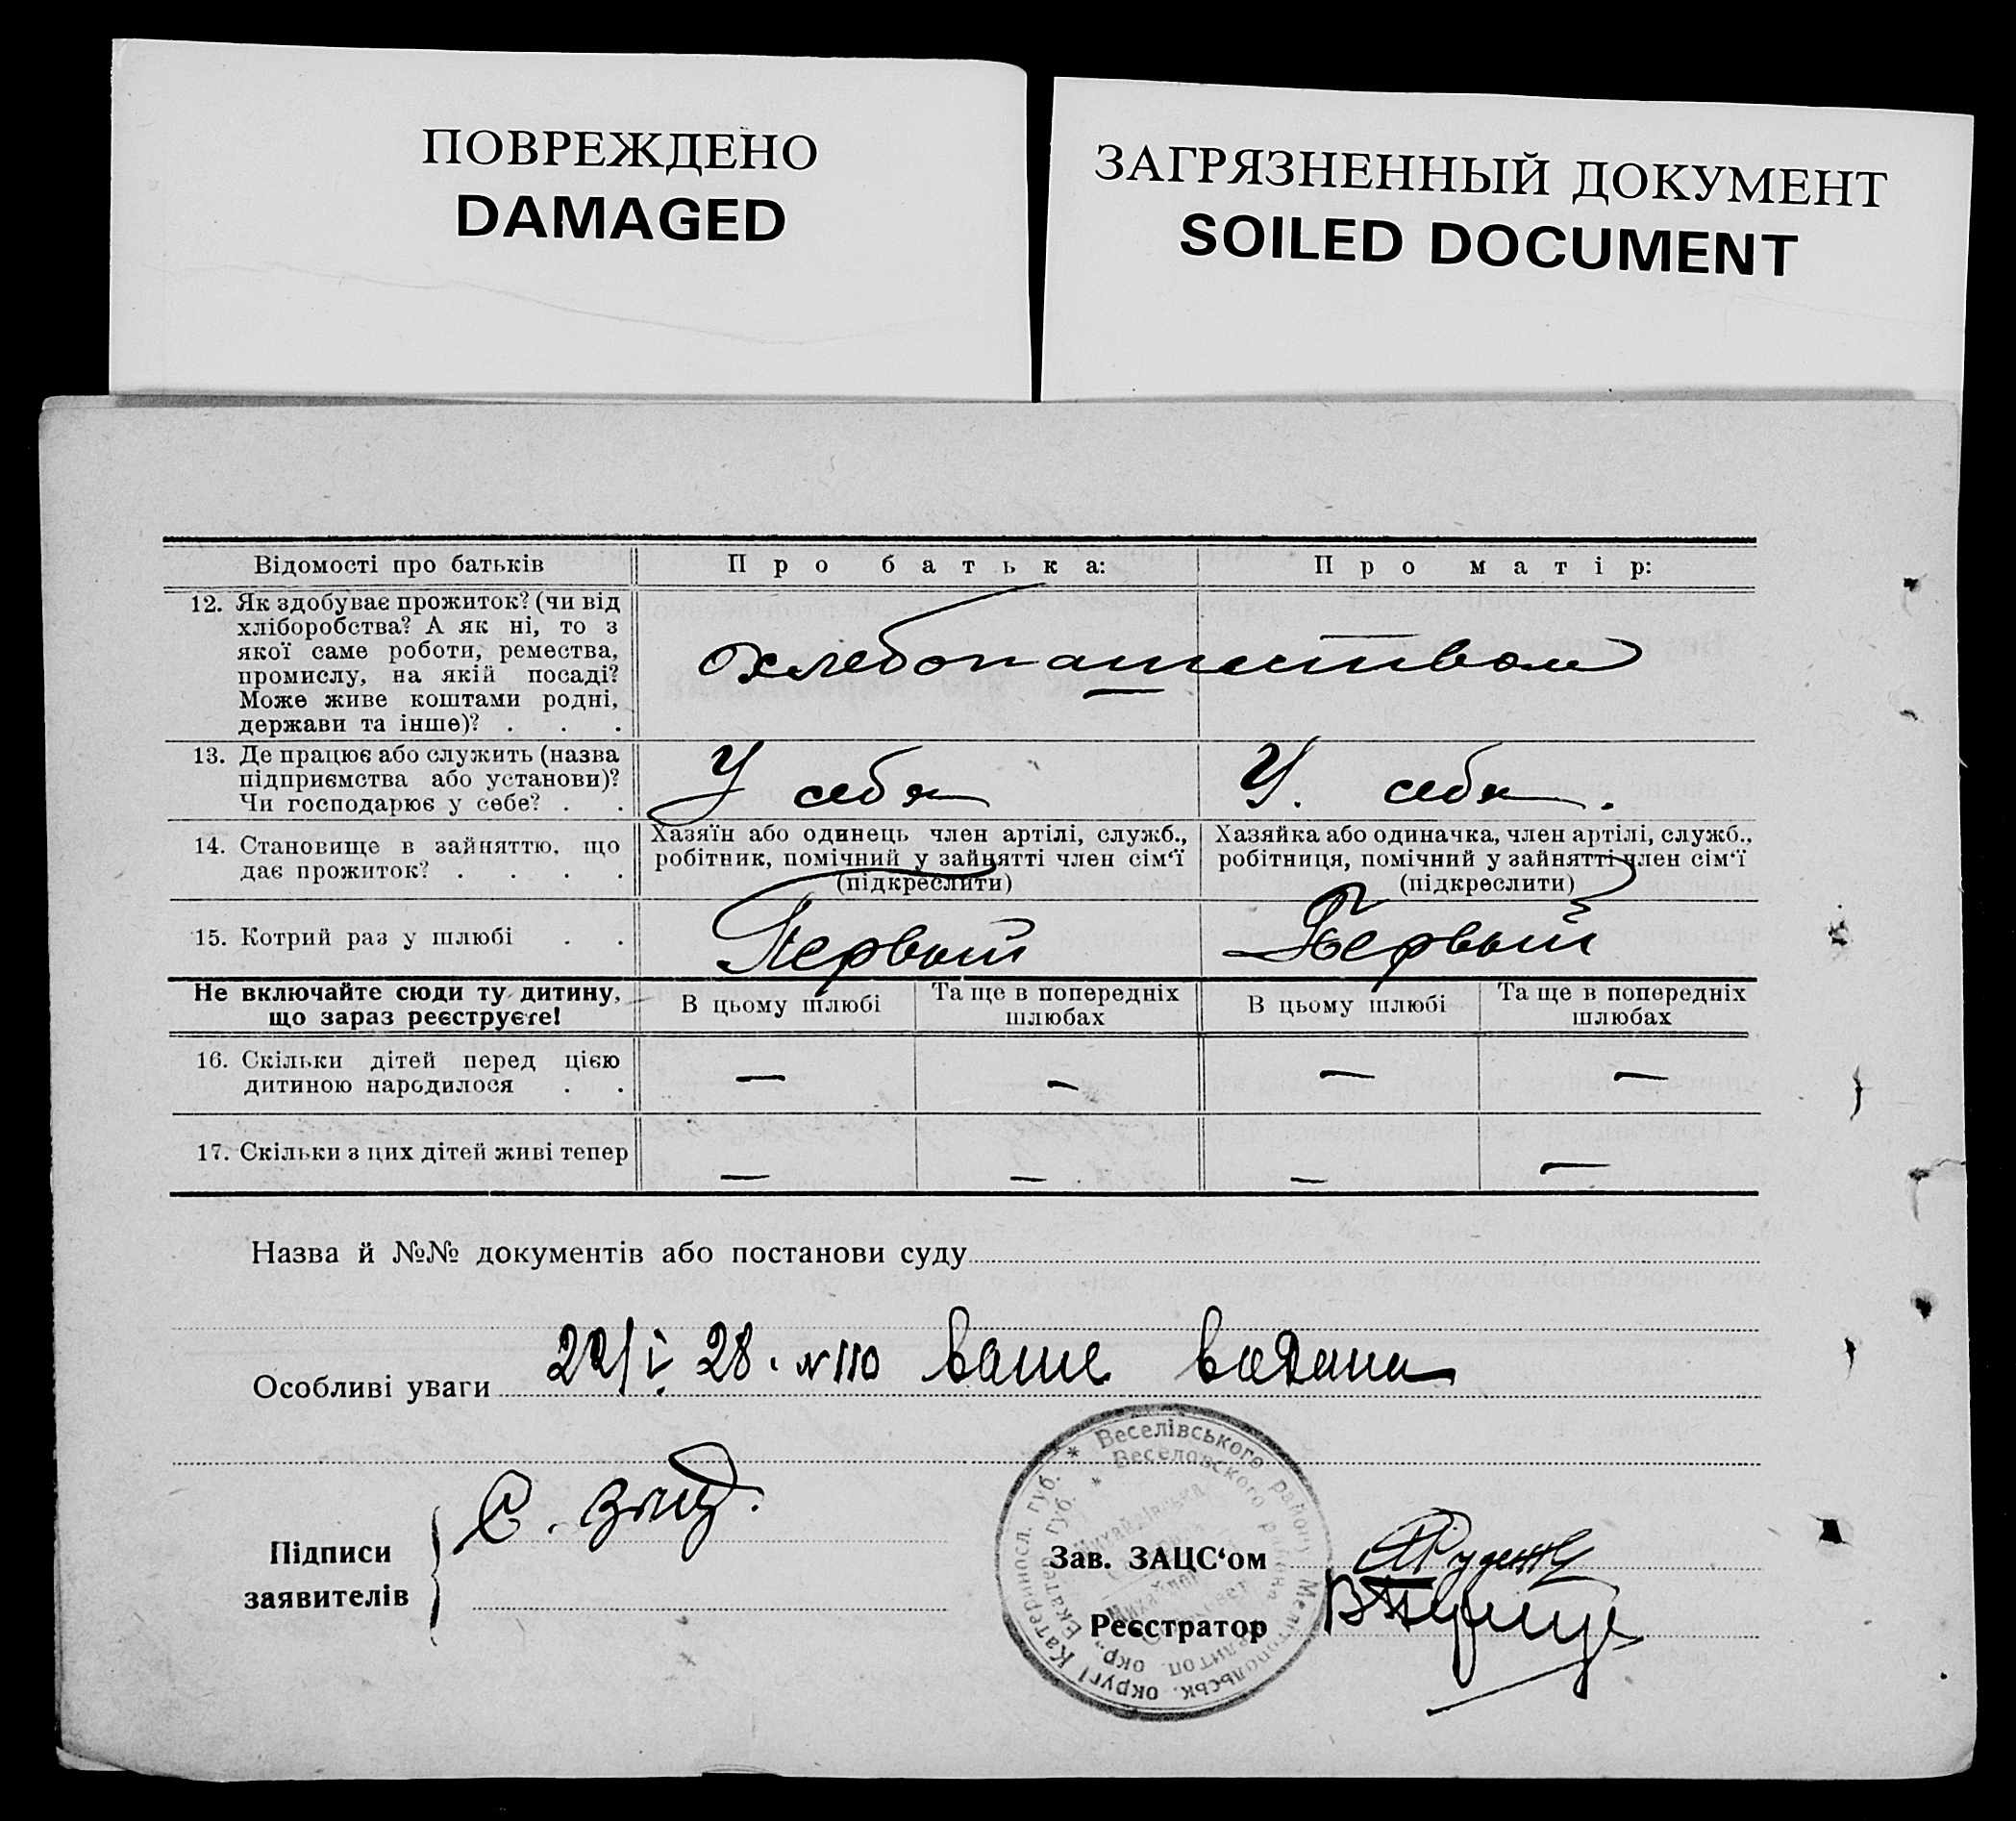 ПОВРЕЖДЕНО
DAMAGED
ЗАГРЯЗНЕННЫЙ ДОКУМЕНТ
SOILED DOCUMENT
Відомості про батьків
Про батька:
Про матір:
12. Як здобуває прожиток? (чи від
хліборобства? А як ні, то з
якої саме роботи, ремества,
промислу, на якій посаді?
Може живе коштами родні,
держави та інше)? . . .
Хлебопашеством
13. Де працює або служить (назва
підприємства або установи)?
Чи господарює у себе? . .
У себя
У. себя.
14. Становище в зайняттю, що
дає прожиток? . . . .
Хазяїн або одинець член артілі, служб.,
робітник, помічний у зайнятті член сім'ї
(підкреслити)
Хазяйка або одиначка, член артілі, служб.,
робітниця, помічний у зайнятті член сім'ї
(підкреслити)
15. Котрий раз у шлюбі . .
Первый
Первый
Не включайте сюди ту дитину,
що зараз реєструєте!
В цьому шлюбі
Та ще в попередніх
шлюбах
В цьому шлюбі
Та ще в попередніх
шлюбах
16. Скільки дітей перед цією
дитиною народилося . .
— — — —
17. Скільки з цих дітей живі тепер
— — — —
Назва й №№ документів або постанови суду
Особливі уваги 22/І 28. № 110
Підписи
заявителів
С.
Зав. ЗАЦС'ом
Реєстратор
* Веселівського району Мелітопольськ. округі Катериносл. губ.
* Веселовского района Мелитоп. окр., Екатер. губ.